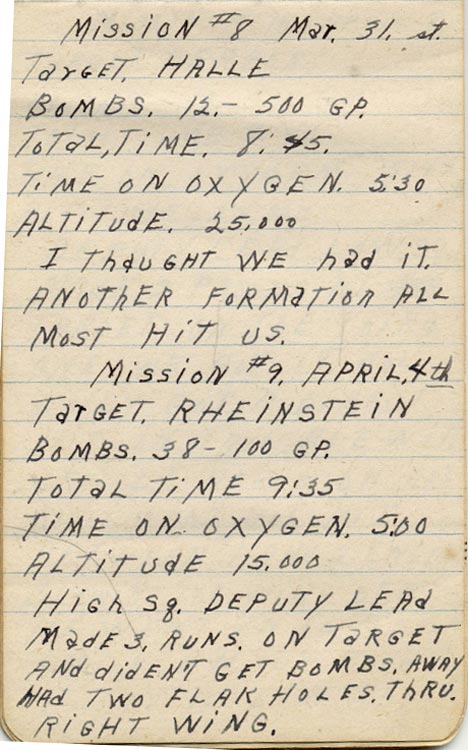 Mission #8 Mar. 31. st.
Target. HALLE
BOMBS. 12.- 500 GP.
TOTAL, TIME. 8: 45.
TIME ON OXYGEN. 5:30
ALTITUDE. 25,000
I THAUGHT WE had IT.
ANOTHER FORMATION ALL
MOST HIT US.
MISSION #9. APRIL, 4th
TARGET. RHEINSTEIN
BOMBS. 38- 100 GP.
TOTAL TIME 9:35
TIME ON. OXYGEN. 5:00
ALTITUDE 15.000
HIGH SQ. DEPUTY LEAD
MADE 3. RUNS. ON TARGET
AND didENT GET BOMBS. AWAY
HAd TWO FLAK HOLES. THRU.
RIGHT WING.